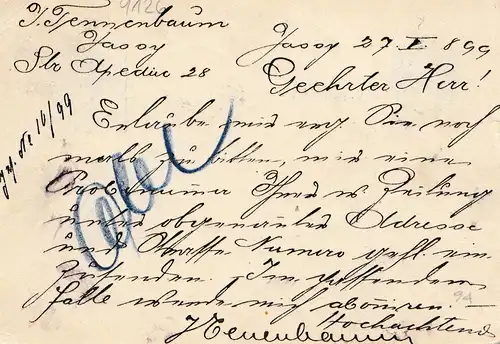 9126
J. Tennenbaum
Jassy
Str Apeduc 28
Jassy 27 I 899
Geehrter Herr!
Erlaube mir erg. Sie noch
mals zu bitten, mir eine
Probenummer Ihres w. Zeitung
unter obgenauter Adresse
und Strasse Numero gefl. ein
zusenden. Im passendem
falle werde mich abóniren.
Hochachtend
J Tenenbaum
No 10/99